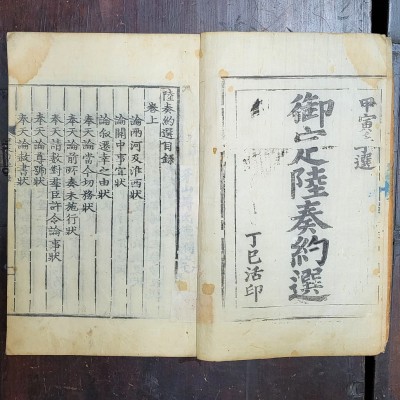 甲寅手選
御定陸奏約選
丁巳活印
陸奏約選目錄
卷上
論兩河及淮西狀
論關中事宜狀
論叙遷幸之由狀
奉天論當今切務狀
奉天論前所奏未施行狀
奉天請數對羣臣許令論事狀
奉天論尊號狀
奉天論赦書狀